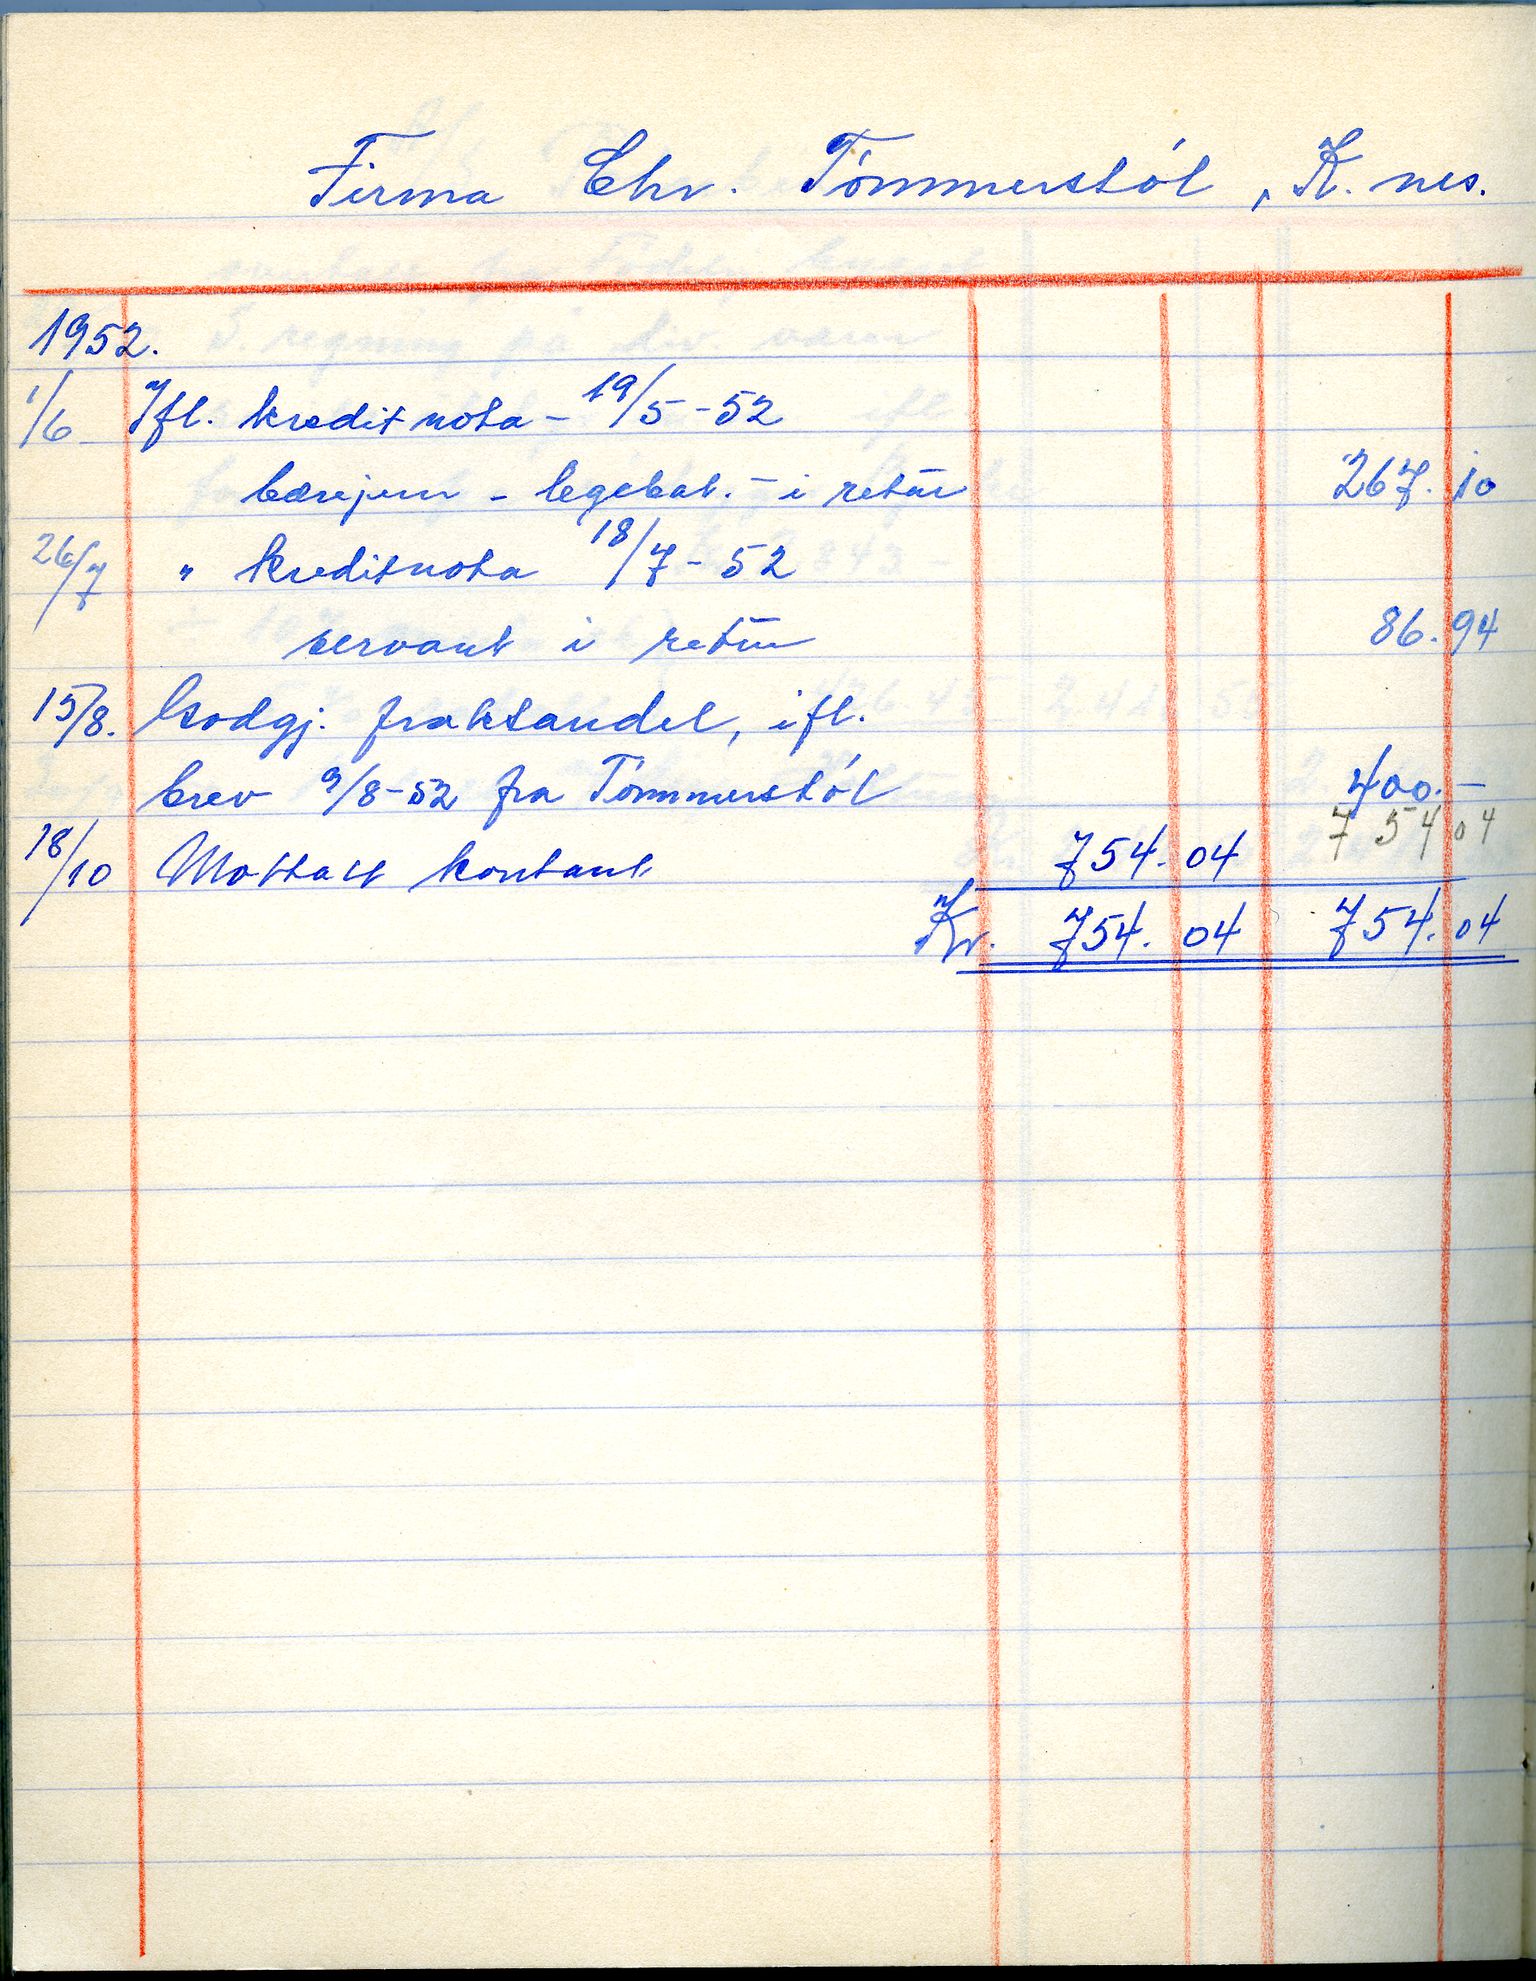 Firma Chr. Tømmerstøl, K. nes.
1952.
1/6 Ifl. kreditnota - 19/5 - 52
bærejern - legebat. - i retur 267. 10
26/7 " kreditnota 18/7 - 52
servant i retur 86. 94
15/8. Godgj. fraktandel, ifl.
brev 9/8 - 52 fra Tømmerstøl 400. -
754 04
18/10 Mottatt kontant 754. 04
Kr. 754. 04 754. 04